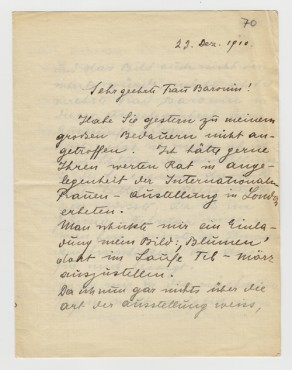 70
23. Dez. 1910
Sehr geehrte Frau Baronin!
Habe Sie gestern zu meinem
großen Bedauern nicht an-
getroffen. Ich hätte gerne
Ihren werten Rat in ange-
legenheit der Internationalen
Frauen-ausstellung in London
erbeten.
Man schickte mir ein Einla-
dung mein Bild, Blumen'
dort im Laufe Feb - märz
auszustellen.
Da ich nun gar nichts über die
art der ausstellung weiss,